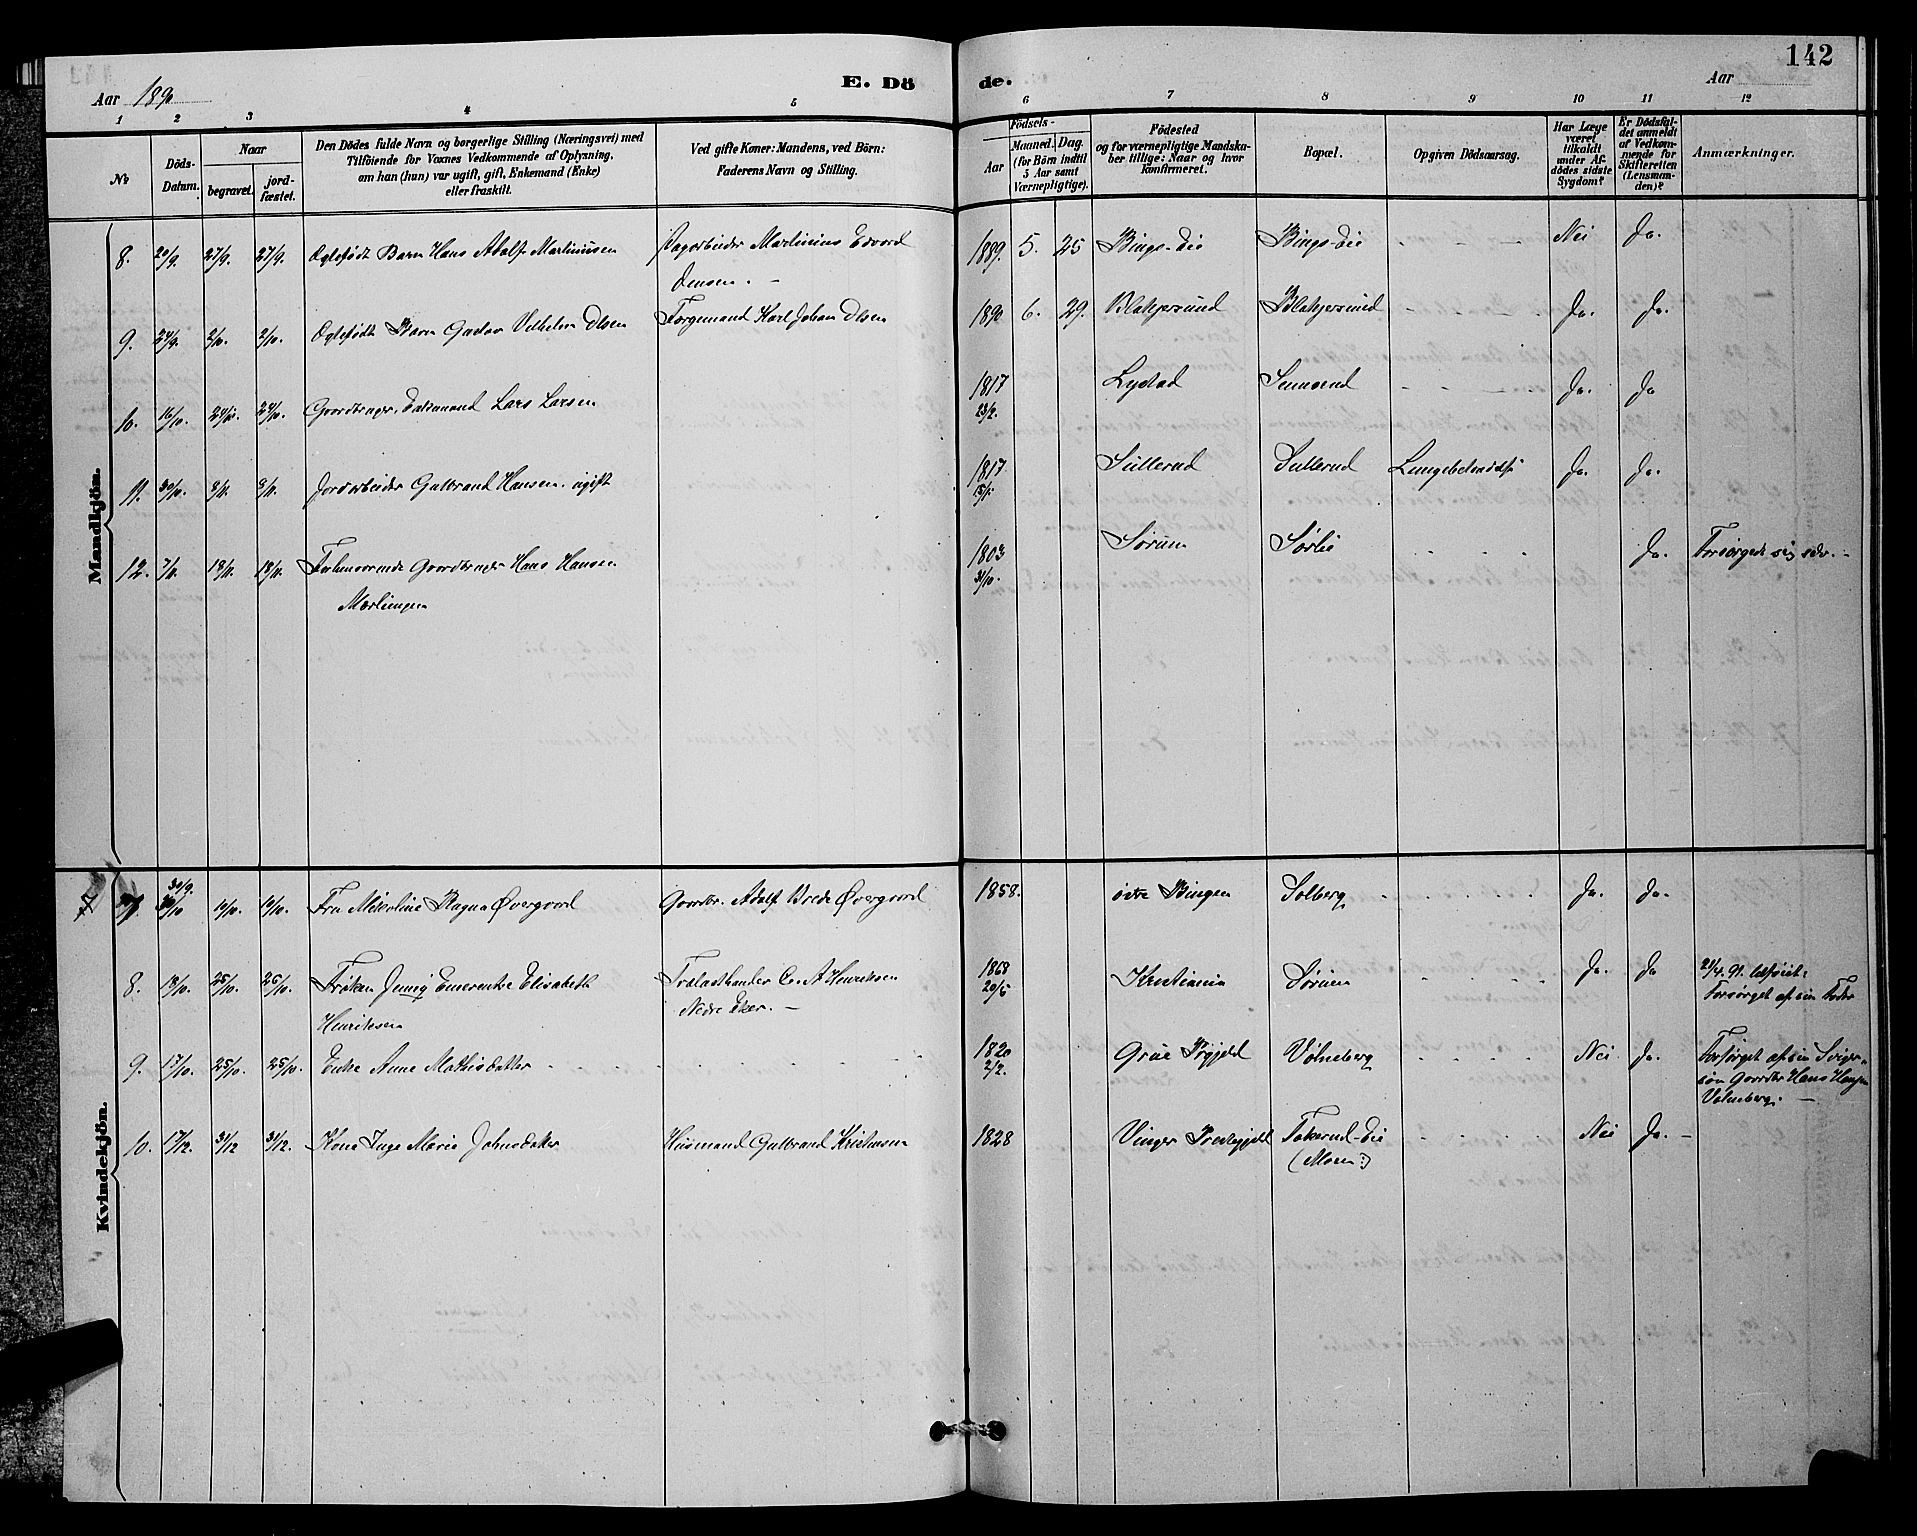 142
Aar 1890
E. Dö
de.
Aar
1 2 3 4 5 6 7 8 9 10 11 12
No
Döds-
Datum.
Naar
begravet.
jord-
fæstet.
Den Dödes fulde Navn og borgerlige Stilling (Næringsvei) med
Tilföiende for Voxnes Vedkommende af Oplysning,
om han (hun) var ugift, gift, Enkemand (Enke)
eller fraskilt.
Ved gifte Koner: Mandens, ved Börn:
Faderens Navn og Stilling.
Födsels-
Aar
Maaned. Dag.
(for Börn indtil
5 Aar samt
Værnepligtige).
Födested
og for værnepligtige Mandska-
ber tillige: Naar og hvor
konfirmeret.
Bopæl.
Opgiven Dödsaarsag.
Har Læge
været
tilkaldt
under Af-
dödes sidste
Sygdom?
Er Dödsfal-
det anmeldt
af Vedkom-
mende for
Skifteretten
(Lensman-
den)?
Anmærkninger.
Mandkjön.
8. 20/9. 27/9. 27/9. Ægtefødt Barn Hans Adolf Martinusen Dagarbeider Martinius Edvard 1889. 5. 25 Bings-Eie Bings-Eie Nei Ja.
Jensen.
9. 24/9. 2/10. 2/10. Ægtefødt Barn Gustav Vilhelm Olsen Færgemand Karl Johan Olsen 1890 6. 29. Blakjersund Blakjersund Ja. Ja.
10. 16/10. 24/10. 24/10. Gaardbruger, Lars Larsen 1817 Lystad Ja. Ja
23/2.
11. 30/10. 8/11. 8/11. Jordarbeider Gulbrand Hansen. ugift 1817 Sullerud Sullerud Ja. Ja.
12. 7/11. 18/11. 18/11. Forhenværende Gaardbruger Hans Hansen 1803 Sørum Sørlie Ja. Forsørgede sig selv. -
31/10.
Kvindekjön.
7 30/9. 10/10. 10/10. Fru Ragna Øvergaard Gaardbr. Adolf Brede Øvergaard 1858. østre Bingen Solberg Ja. Ja.
8. 18/10. 25/10. 25/10. Frøken Jenny Emerentse Elisabeth Trælasthandler C. A. Henriksen 1868 Kristiania Sørum Ja. Ja 21/4. 91.
Henriksen Nedre Eker. - 20/5 Forsørget af sin Fader
9. 17/10. 25/10. 25/10. Enke Anne Mathisdatter 1820 Grue Prgjeld Vølneberg Nei Ja. Forsørget af sin Sviger-
2/2. søn Gaardbr Hans Hansen
Vølneberg. -
10. 17/12. 31/12 31/12. Kone Inge Marie Johnsdatter Husmand Gulbrand Kristiansen 1828 Vinger Præstegjeld Fakerud-Eie Nei Ja. -
(Moen:)